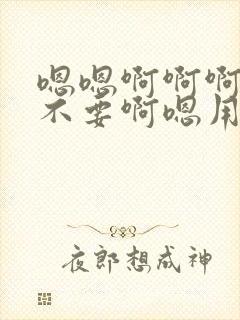 嗯嗯啊啊啊
不要啊嗯用
夜郎想成神